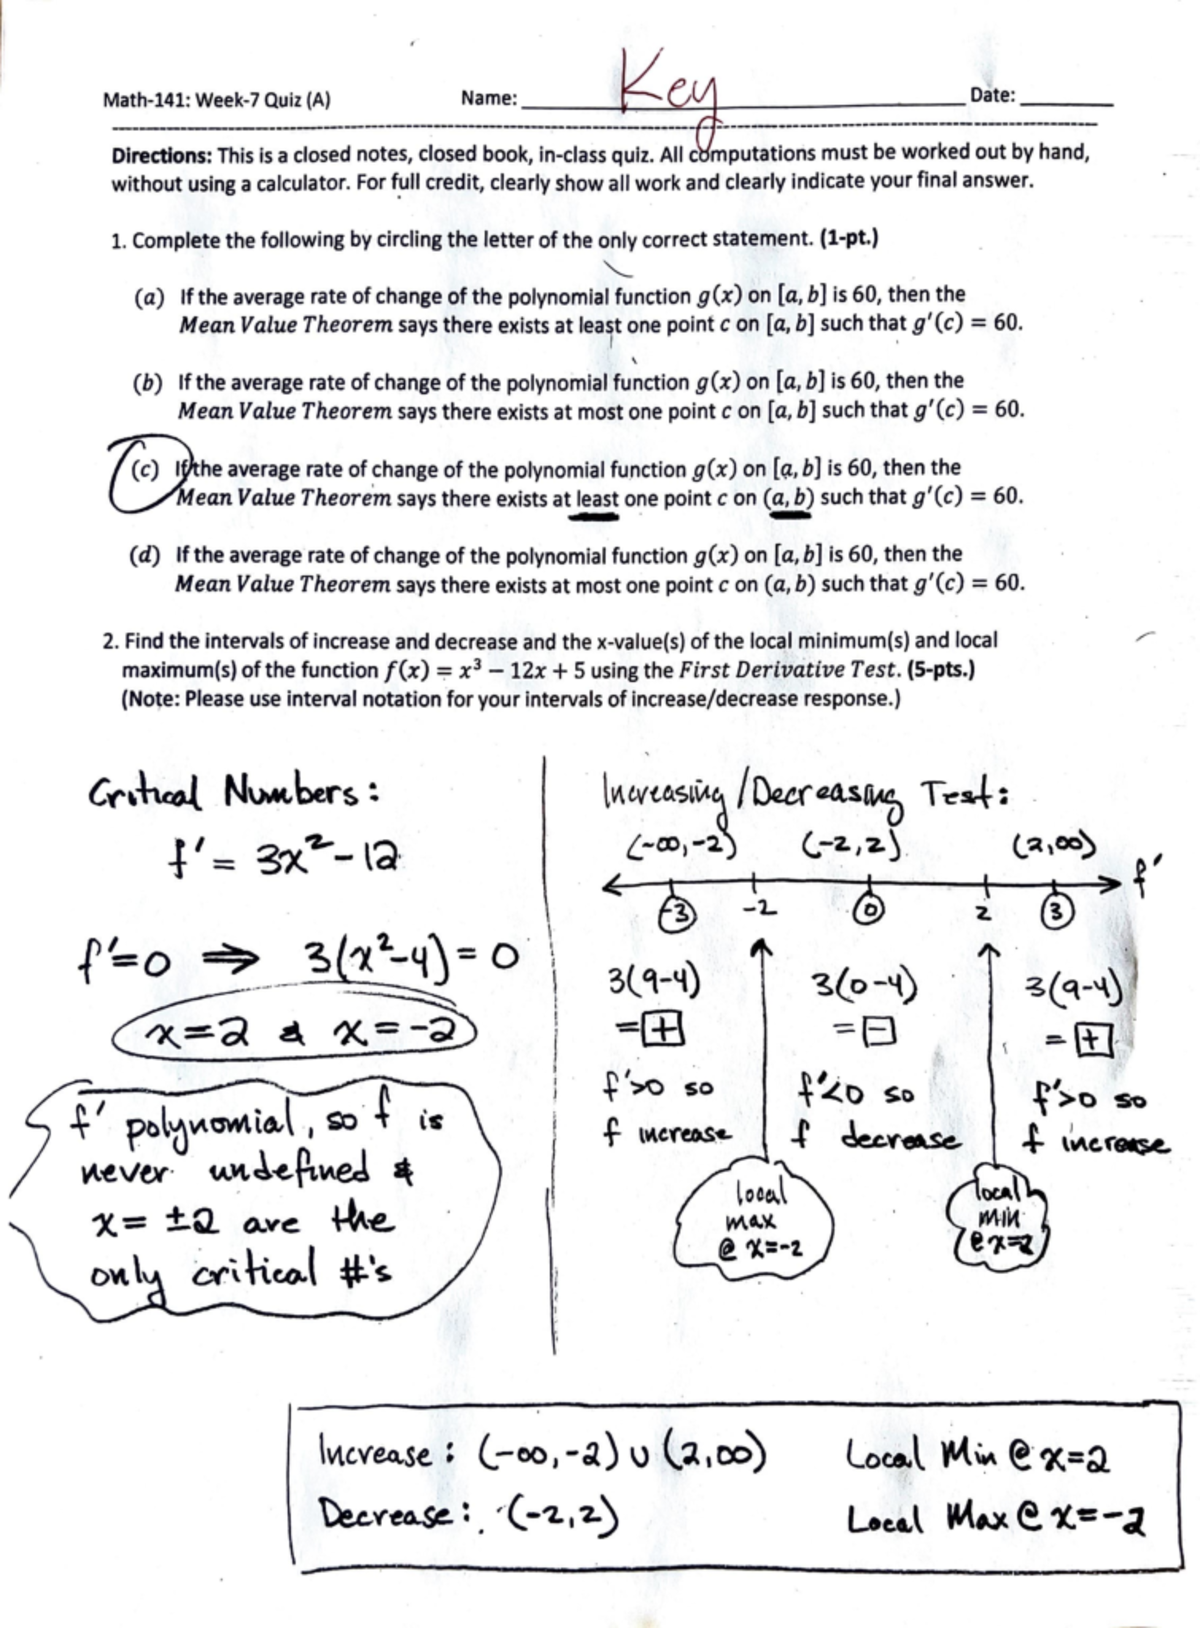 Math-141: Week-7 Quiz (A) Name: Key Date:
Directions: This is a closed notes, closed book, in-class quiz. All computations must be worked out by hand,
without using a calculator. For full credit, clearly show all work and clearly indicate your final answer.
1. Complete the following by circling the letter of the only correct statement. (1-pt.)
(a) If the average rate of change of the polynomial function g(x) on [a, b] is 60, then the
Mean Value Theorem says there exists at least one point c on [a, b] such that g'(c) = 60.
(b) If the average rate of change of the polynomial function g(x) on [a, b] is 60, then the
Mean Value Theorem says there exists at most one point c on [a, b] such that g'(c) = 60.
(c) If the average rate of change of the polynomial function g(x) on [a, b] is 60, then the
Mean Value Theorem says there exists at least one point c on (a, b) such that g'(c) = 60.
(d) If the average rate of change of the polynomial function g(x) on [a, b] is 60, then the
Mean Value Theorem says there exists at most one point c on (a, b) such that g'(c) = 60.
2. Find the intervals of increase and decrease and the x-value(s) of the local minimum(s) and local
maximum(s) of the function f(x) = x³ − 12x + 5 using the First Derivative Test. (5-pts.)
(Note: Please use interval notation for your intervals of increase/decrease response.)
Critical Numbers:
f' = 3x² - 12
f'=0 ⇒ 3(x²-4) = 0
x=2 & x=-2
f' polynomial, so f is
never undefined &
x= ±2 are the
only critical #'s
Increasing/Decreasing Test:
(-∞,-2) (-2,2) (2,∞)
f'
-3 -2 0 2 3
3(9-4) 3(0-4) 3(9-4)
= + = - = +
f'>0 so f'<0 so f'>0 so
f increase f decrease f increase
local local
max min
@ x=-2 @ x=2
Increase: (-∞,-2) ∪ (2,∞) Local Min @ x=2
Decrease: (-2,2) Local Max @ x=-2